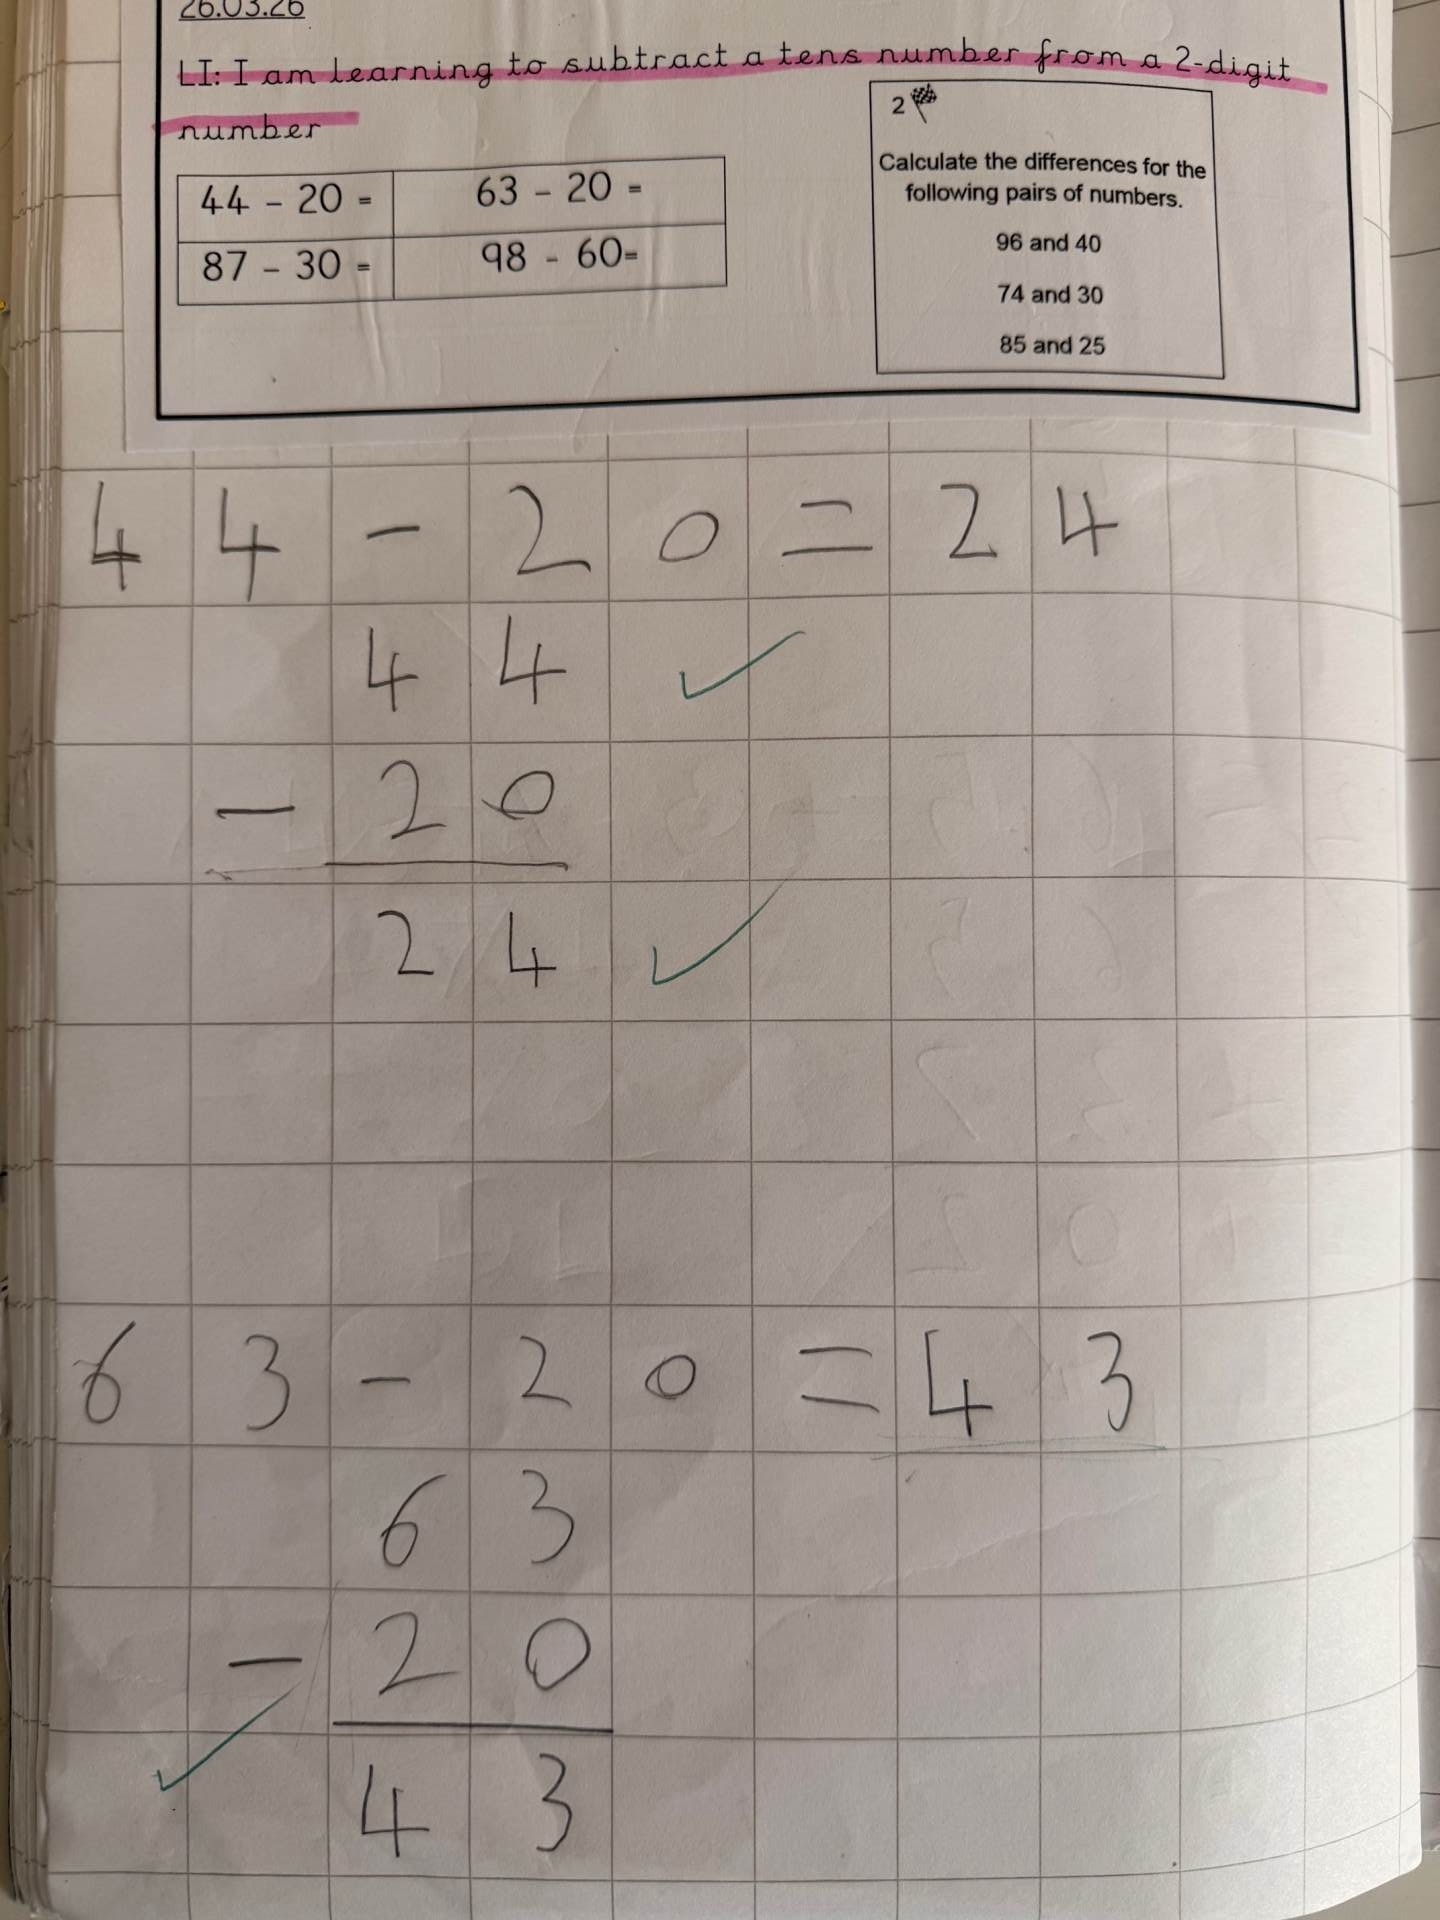 26.03.26
LI: I am learning to subtract a tens number from a 2-digit
number
44 - 20 =
63 - 20 =
87 - 30 =
98 - 60=
2
Calculate the differences for the
following pairs of numbers.
96 and 40
74 and 30
85 and 25
44 - 20 = 24
44
- 20
24
63 - 20 = 43
63
- 20
43